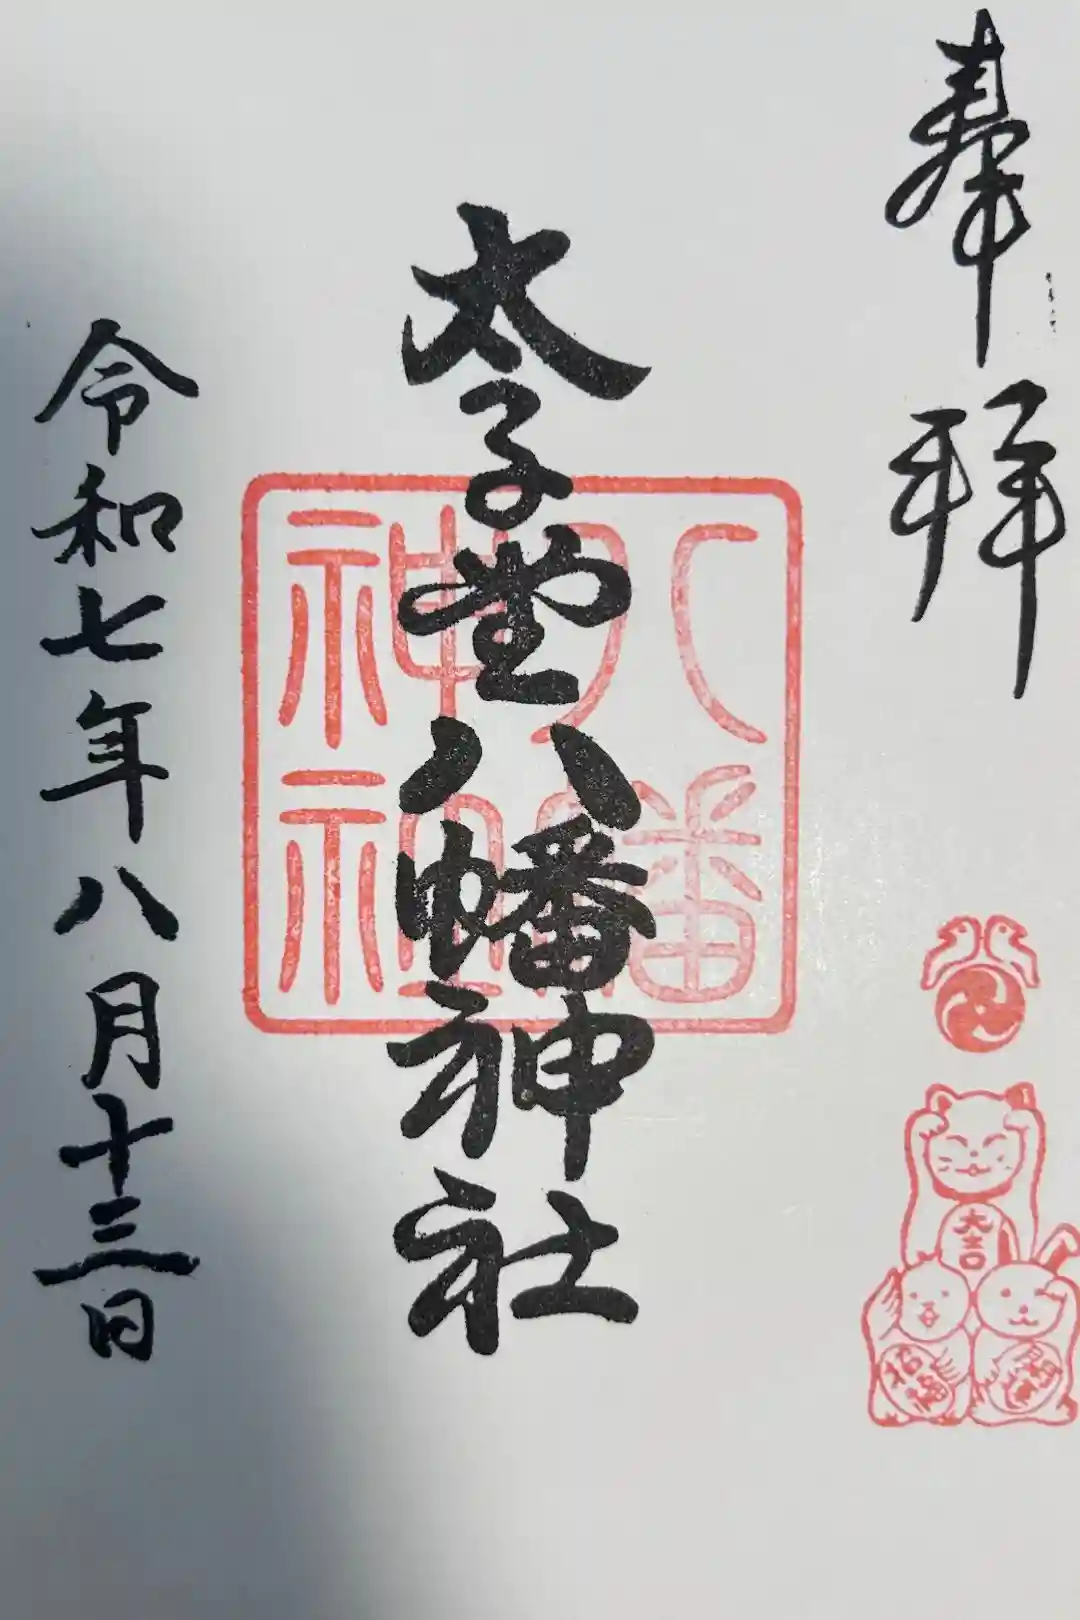 奉拝
太子堂八幡神社
八幡
神社
令和七年八月十三日
大吉
招福
開運